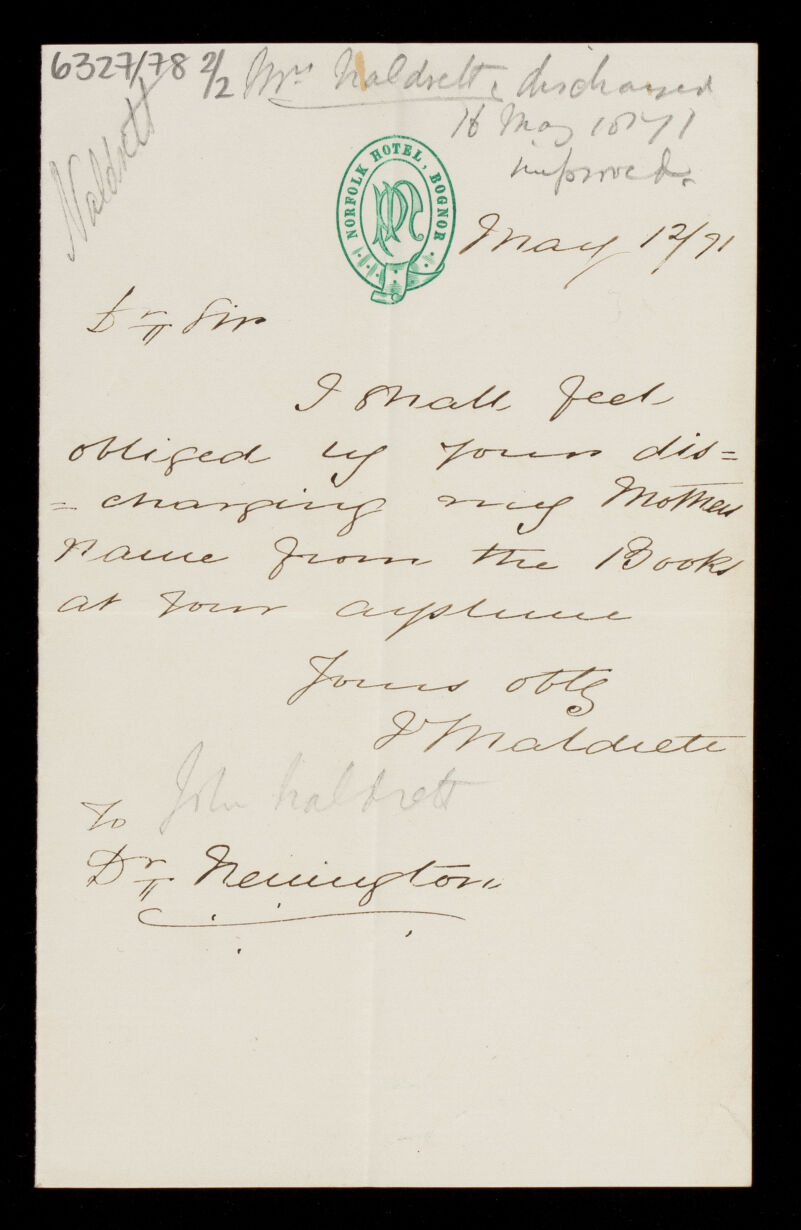 6327/78 2/2 Mrs Naldrett, discharged
16 May 1871
improved.
Naldrett
NORFOLK HOTEL, BOGNOR
May 12/71
Dr Sir
I shall feel
obliged by your dis=
=charging my Mothers
Name from the Books
at your asylume
Yours obtly
J Naldrett
John Naldrett
To
Dr Newington